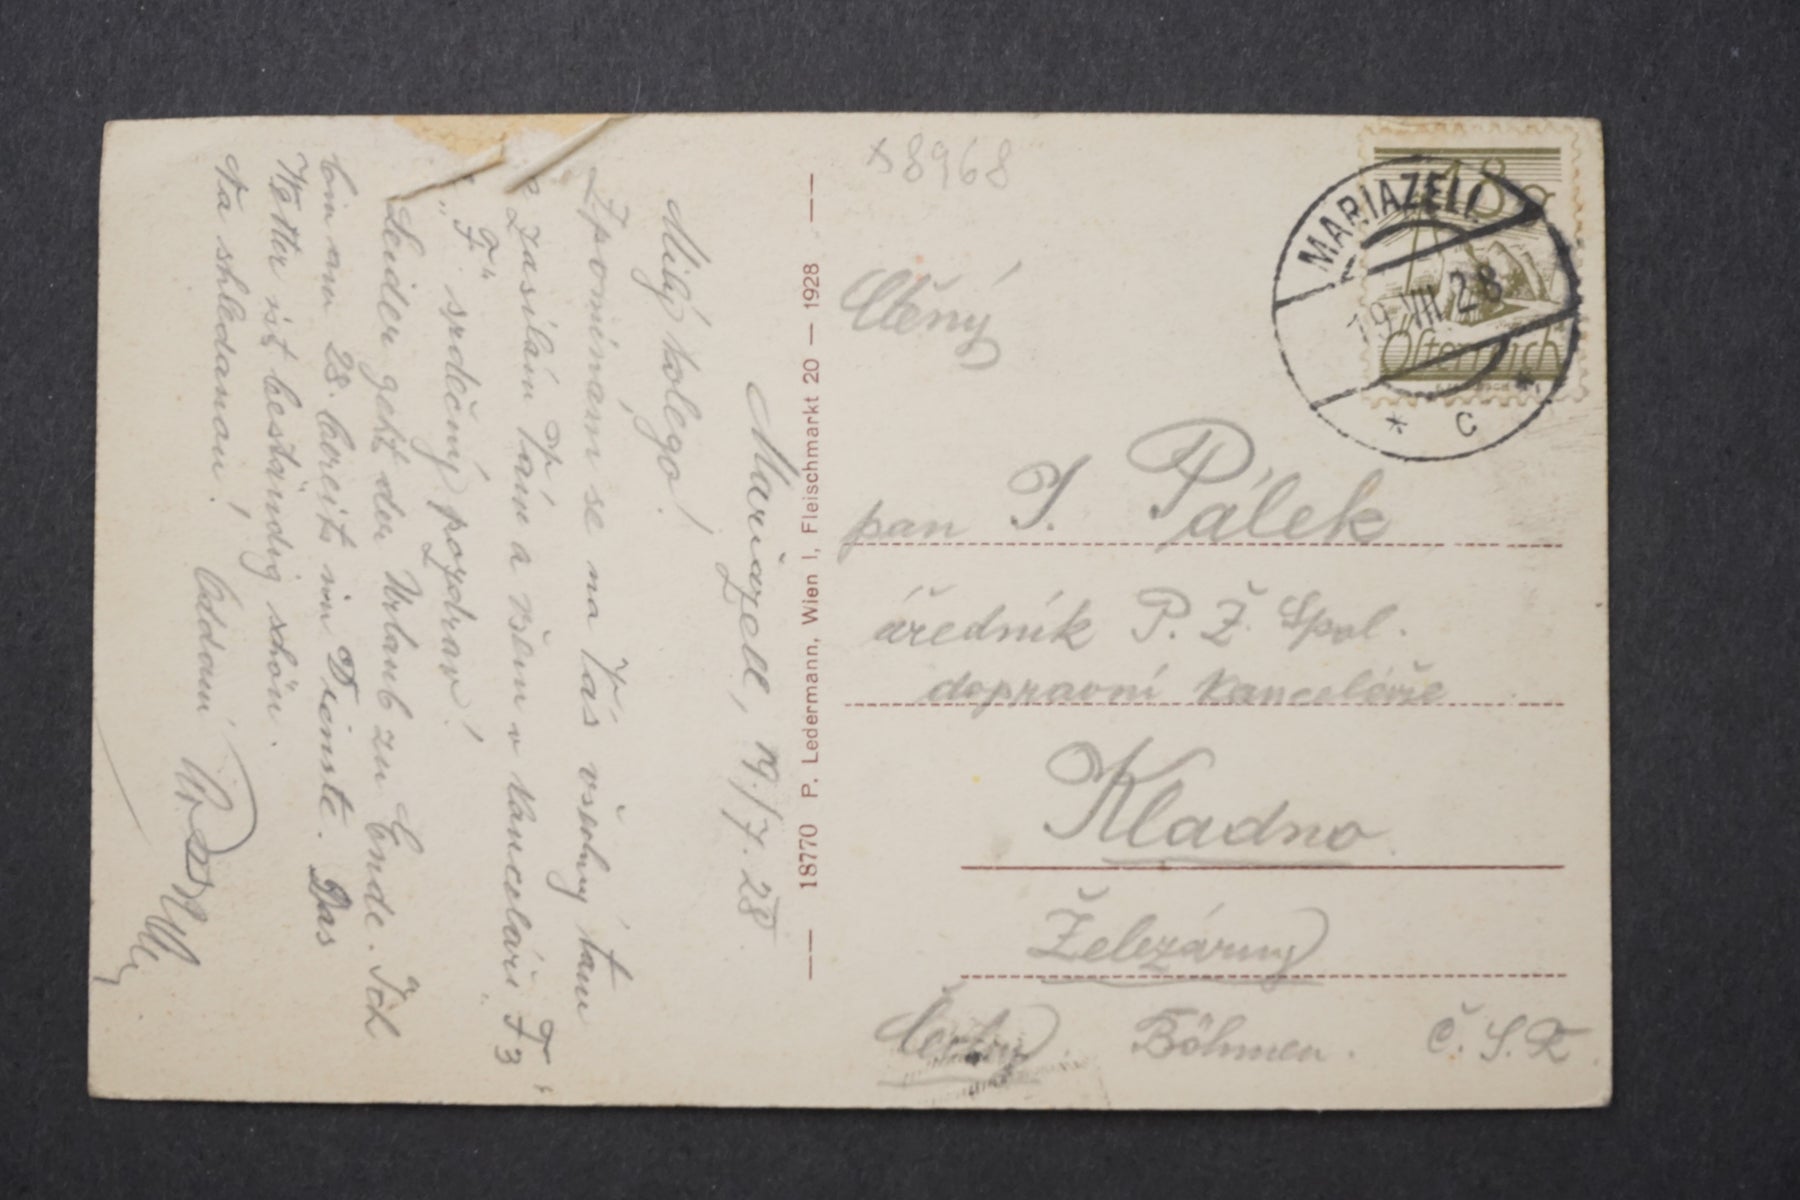 Mariazell, 19./7. 28.
Milý kolego!
Zpomínám se na Vás všechny tam
e zasílám Vám a všem v kanceláři F3
„F“ srdečný pozdrav!
Leider geht der Urlaub zu Ende. Ich
bin am 28. bereits im Dienste. Das
Wetter ist beständig schön.
Na shledanou! Oddaný
18770 P. Ledermann, Wien I, Fleischmarkt 20 — 1928
x8968
MARIAZELL
19 VII 28
* C *
18 g
Österreich
Ctěný
pan J. Pálek
úředník P. Ž. Spol.
dopravní kanceláře
Kladno
Železárny
Čechy. Böhmen. Č. S. R.